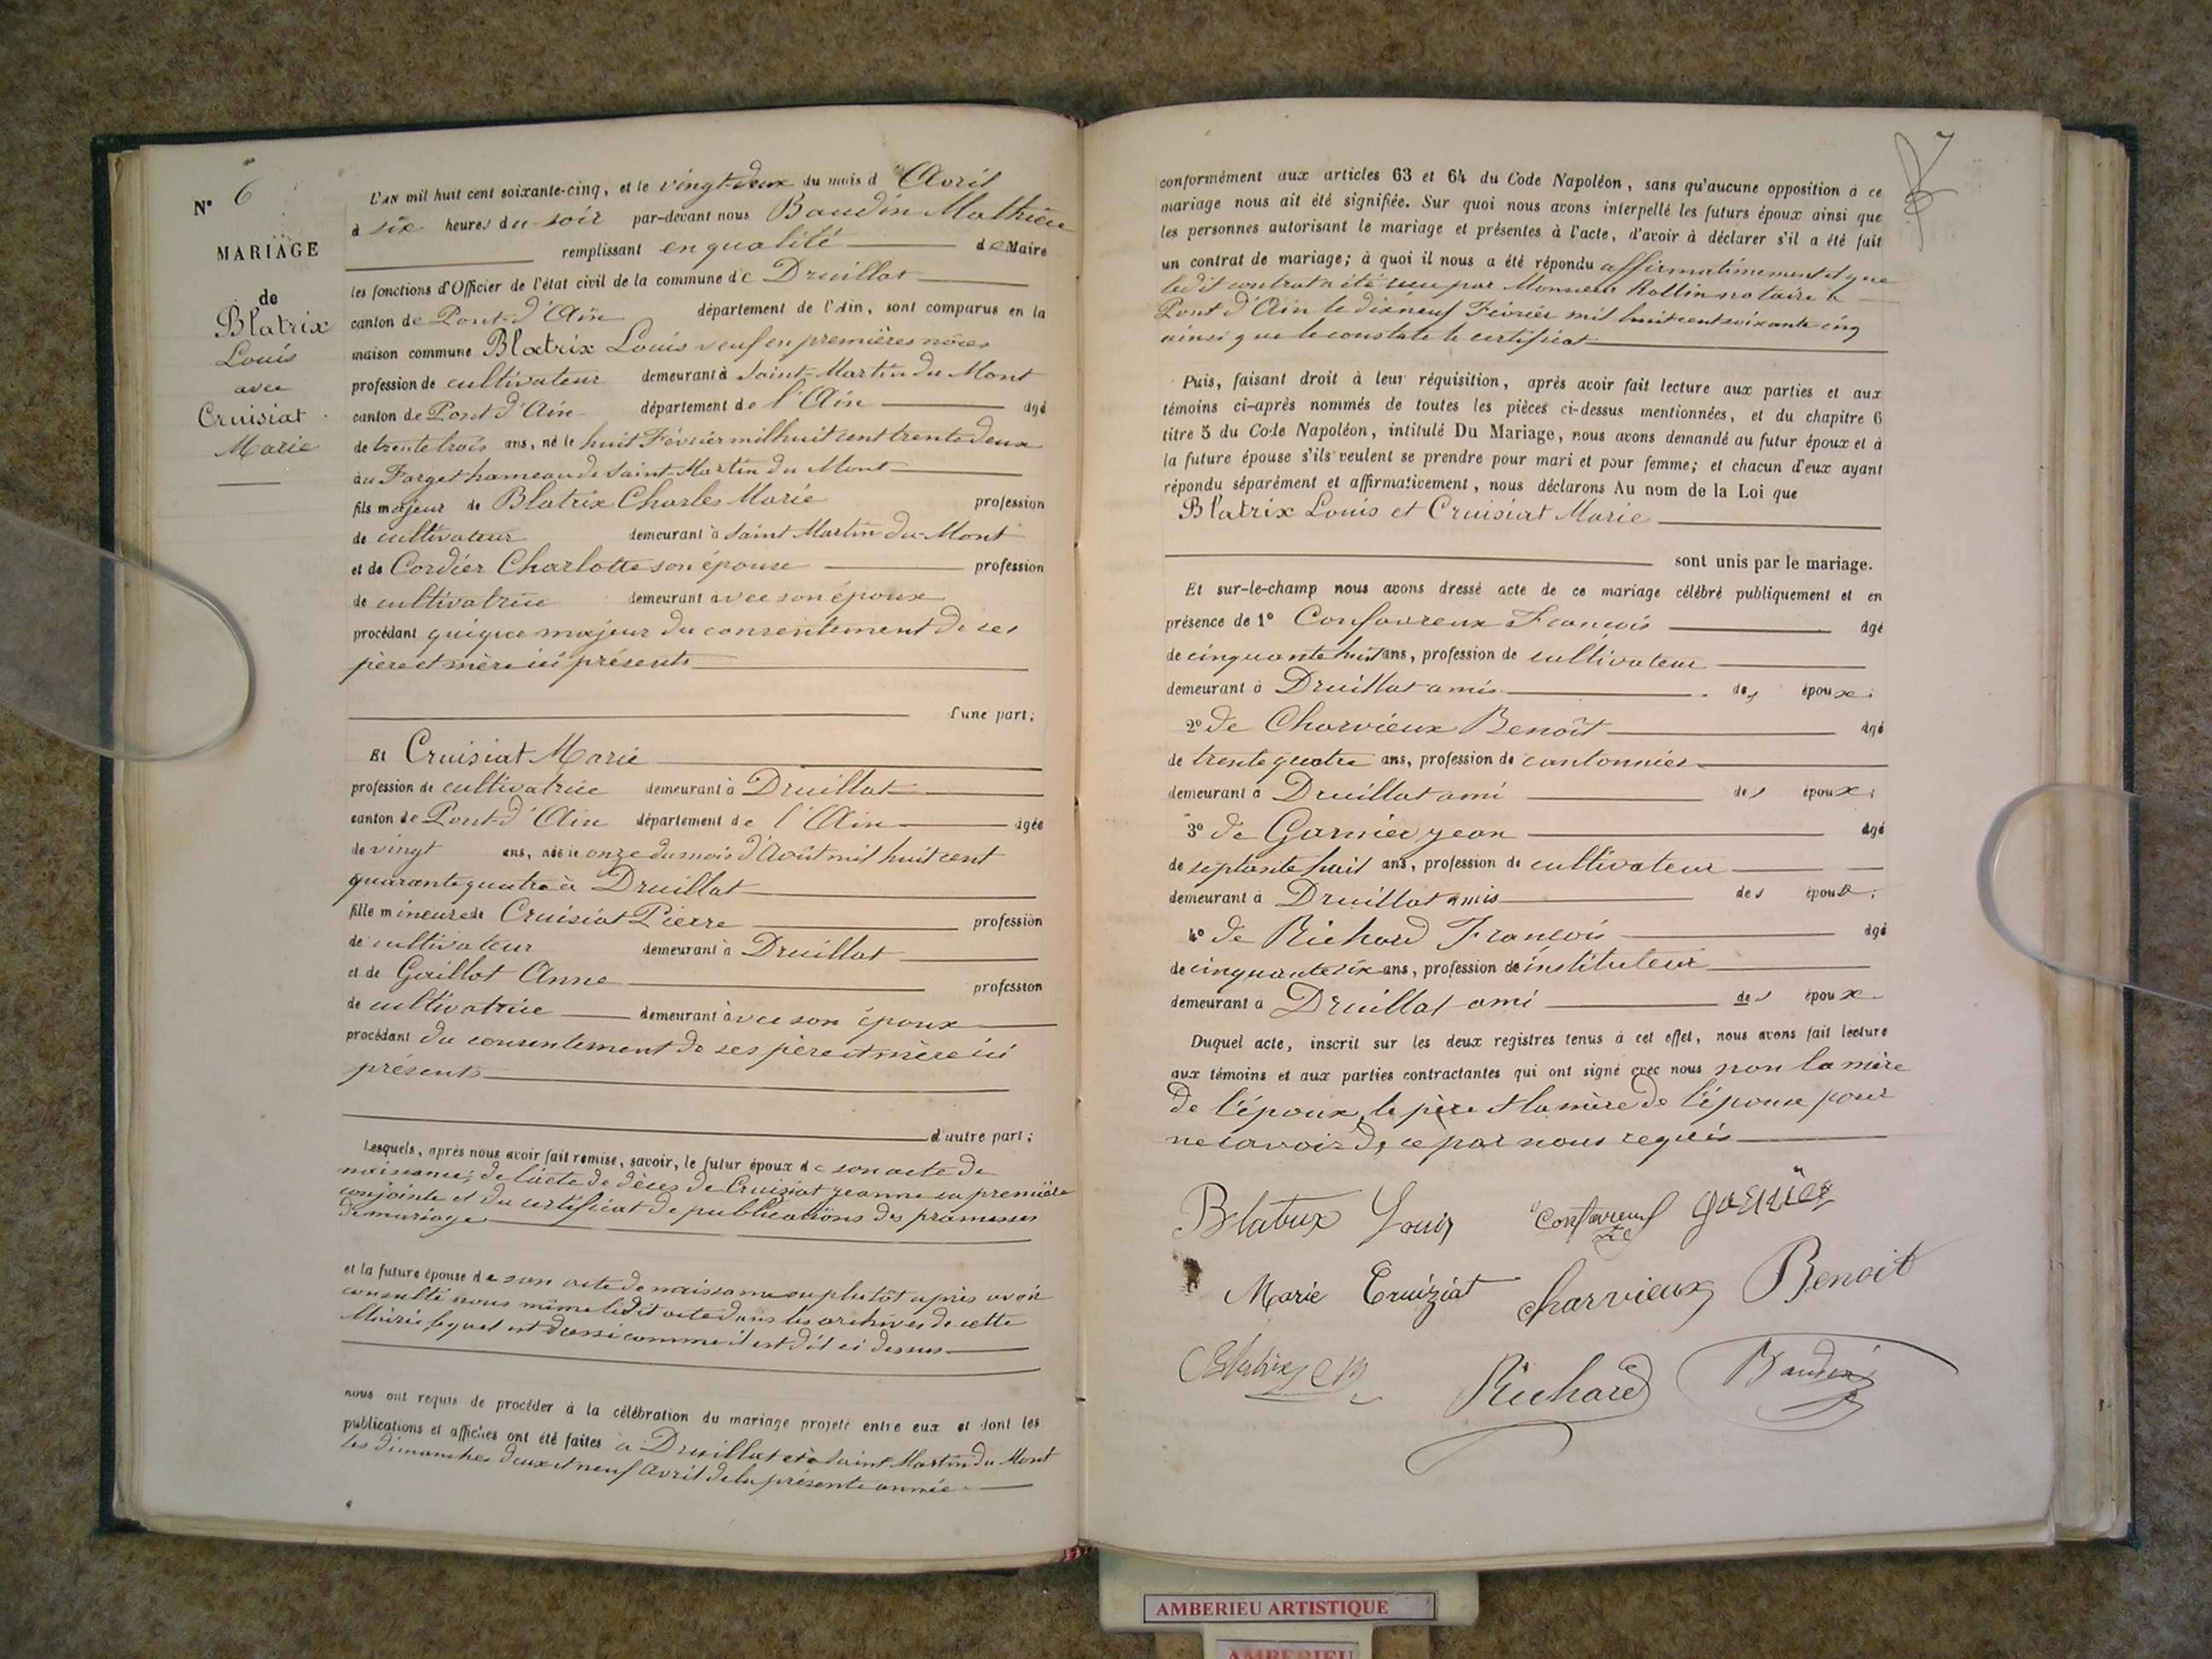 N° 6
MARIAGE
de
Blatrix
Louis
avec
Cruisiat
Marie
L'AN mil huit cent soixante-cinq, et le vingt-deux du mois d'Avril
à six heures du soir par-devant nous Baudin Mathieu
remplissant en qualité de Maire
les fonctions d'Officier de l'état civil de la commune de Druillat
canton de Pont-d'Ain département de l'Ain, sont comparus en la
maison commune Blatrix Louis veuf en premières nôces
profession de cultivateur demeurant à Saint-Martin du Mont
canton de Pont d'Ain département de l'Ain âgé
de trente trois ans, né le huit Février mil huit cent trente deux
au Farget hameau de Saint Martin du Mont
fils majeur de Blatrix Charles Marie profession
de cultivateur demeurant à Saint Martin du-Mont
et de Cordier Charlotte son épouse profession
de cultivatrice demeurant avec son époux
procédant quoique majeur du consentement de ses
père et mère ici présents
d'une part;
Et Cruisiat Marie
profession de cultivatrice demeurant à Druillat
canton de Pont-d'Ain département de l'Ain âgée
de vingt ans, née le onze du mois d'Août mil huit cent
quarante quatre à Druillat
fille mineure de Cruisiat Pierre profession
de cultivateur demeurant à Druillat
et de Gaillot Anne profession
de cultivatrice demeurant avec son époux
procédant du consentement de ses père et mère ici
présents
d'autre part;
Lesquels, après nous avoir fait remise, savoir, le futur époux de son acte de
naissance, de l'acte de décès de Cruiziat Jeanne sa première
conjointe et du certificat de publications des promesses
de mariage
et la future épouse de son acte de naissance ou plutôt après avoir
consulté nous même ledit acte dans les archives de cette
Mairie lequel est dressé comme il est dit ci dessus
nous ont requis de procéder à la célébration du mariage projeté entre eux et dont les
publications et affiches ont été faites à Druillat et à Saint Martin du Mont
les dimanches deux et neuf Avril de la présente année
7
conformément aux articles 63 et 64 du Code Napoléon, sans qu'aucune opposition à ce
mariage nous ait été signifiée. Sur quoi nous avons interpellé les futurs époux ainsi que
les personnes autorisant le mariage et présentes à l'acte, d'avoir à déclarer s'il a été fait
un contrat de mariage; à quoi il nous a été répondu affirmativement et que
ledit contrat a été reçu par Monsieur Rollin notaire à
Pont d'Ain le dix neuf Février mil huit cent soixante cinq
ainsi que le constate le certificat
Puis, faisant droit à leur réquisition, après avoir fait lecture aux parties et aux
témoins ci-après nommés de toutes les pièces ci-dessus mentionnées, et du chapitre 6
titre 5 du Code Napoléon, intitulé Du Mariage, nous avons demandé au futur époux et à
la future épouse s'ils veulent se prendre pour mari et pour femme; et chacun d'eux ayant
répondu séparément et affirmativement, nous déclarons Au nom de la Loi que
Blatrix Louis et Cruisiat Marie
sont unis par le mariage.
Et sur-le-champ nous avons dressé acte de ce mariage célébré publiquement et en
présence de 1° Confavreux François âgé
de cinquante huit ans, profession de cultivateur
demeurant à Druillat amis des époux;
2° de Charvieux Benoît âgé
de trente quatre ans, profession de cantonnier
demeurant à Druillat ami des époux;
3° de Garnier Jean âgé
de septante huit ans, profession de cultivateur
demeurant à Druillat amis des époux;
4° de Richard François âgé
de cinquante six ans, profession de instituteur
demeurant à Druillat ami des époux
Duquel acte, inscrit sur les deux registres tenus à cet effet, nous avons fait lecture
aux témoins et aux parties contractantes qui ont signé avec nous non la mère
de l'époux, le père et la mère de l'épouse pour
ne savoir de ce par nous requis
Blatrix Louis Confavreux garnier
Marie Cruiziat Charvieux Benoit
Blatrix CM Richard Baudin
AMBERIEU ARTISTIQUE
AMBERIEU